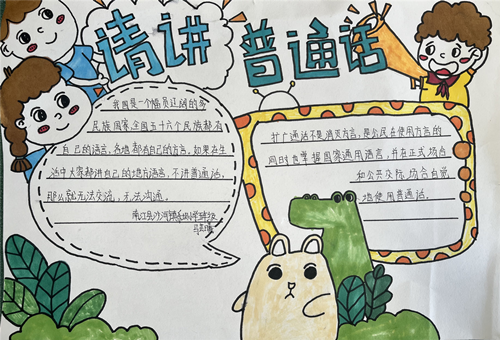 请讲
普通话
我国是一个幅员辽阔的多
民族国家,全国五十六个民族都有
自己的语言,各地都有自己的方言,如果在生
活中大家都讲自己的地方语言,不讲普通话,
那么就无法交流,无法沟通。
南江县沙河镇
扩广通话不是消灭方言,是公民在使用方言的
同时也掌握国家通用语言,并在正式场合
如公共交际场合自觉
地使用普通话。